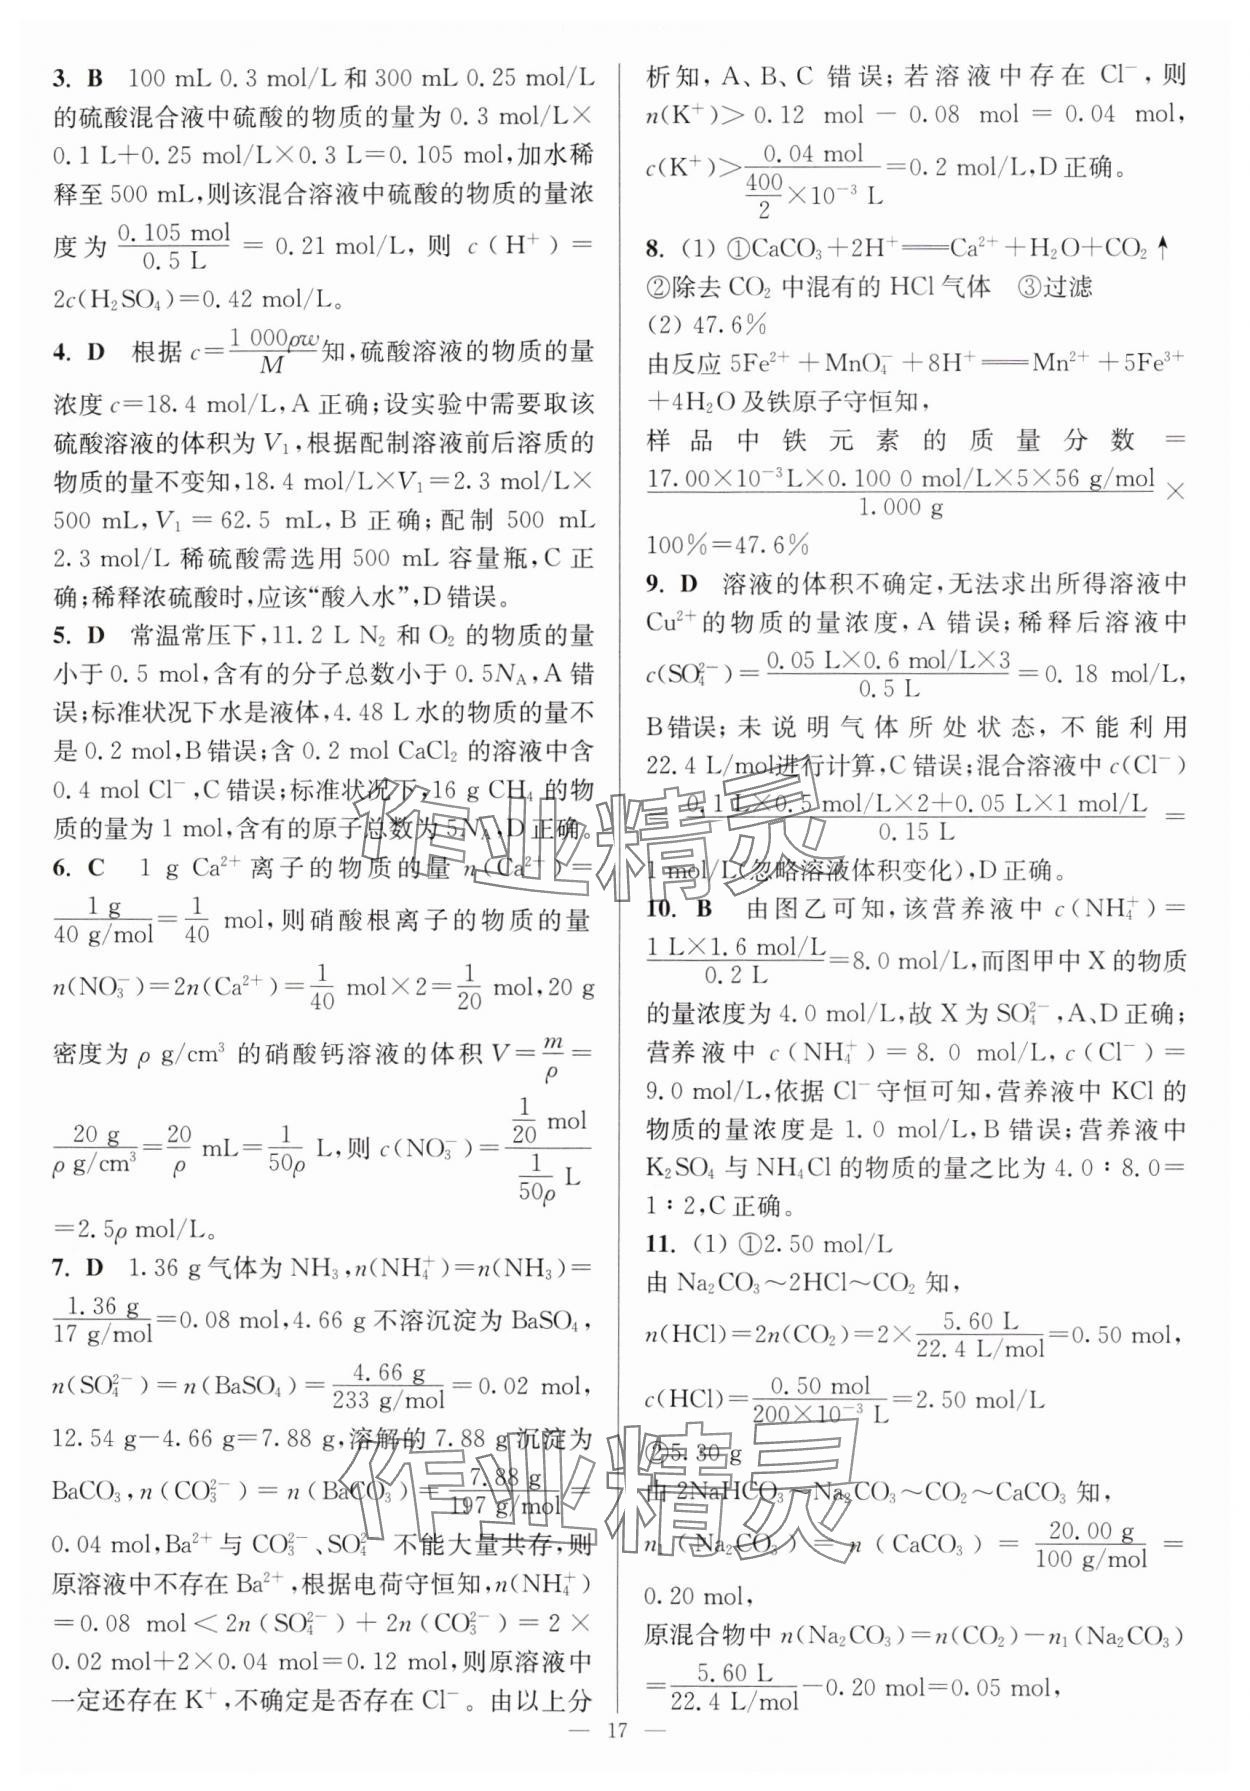 3. B 100 mL 0.3 mol/L和300 mL 0.25 mol/L
的硫酸混合液中硫酸的物质的量为0.3 mol/L×
0.1 L+0.25 mol/L×0.3 L=0.105 mol,加水稀
释至500 mL,则该混合溶液中硫酸的物质的量浓
度为 0.105 mol/0.5 L = 0.21 mol/L, 则 c(H⁺)=
2c(H₂SO₄)=0.42 mol/L。
4. D 根据c=1 000ρw/M知,硫酸溶液的物质的量
浓度c=18.4 mol/L,A正确;设实验中需要取该
硫酸溶液的体积为V₁,根据配制溶液前后溶质的
物质的量不变知,18.4 mol/L×V₁=2.3 mol/L×
500 mL,V₁=62.5 mL,B正确;配制500 mL
2.3 mol/L稀硫酸需选用500 mL容量瓶,C正
确;稀释浓硫酸时,应该“酸入水”,D错误。
5. D 常温常压下,11.2 L N₂和O₂的物质的量
小于0.5 mol,含有的分子总数小于0.5N_A,A错
误;标准状况下水是液体,4.48 L水的物质的量不
是0.2 mol,B错误;含0.2 mol CaCl₂的溶液中含
0.4 mol Cl⁻,C错误;标准状况下,16 g CH₄的物
质的量为1 mol,含有的原子总数为5N_A,D正确。
6. C 1 g Ca²⁺离子的物质的量n(Ca²⁺)=
1 g/40 g/mol=1/40 mol,则硝酸根离子的物质的量
n(NO₃⁻)=2n(Ca²⁺)=1/40 mol×2=1/20 mol,20 g
密度为ρ g/cm³的硝酸钙溶液的体积V=m/ρ=
20 g/ρ g/cm³=20/ρ mL=1/50ρ L,则c(NO₃⁻)=(1/20 mol)/(1/50ρ L)
=2.5ρ mol/L。
7. D 1.36 g气体为NH₃,n(NH₄⁺)=n(NH₃)=
1.36 g/17 g/mol=0.08 mol,4.66 g不溶沉淀为BaSO₄,
n(SO₄²⁻)=n(BaSO₄)=4.66 g/233 g/mol=0.02 mol,
12.54 g-4.66 g=7.88 g,溶解的7.88 g沉淀为
BaCO₃,n(CO₃²⁻)=n(BaCO₃)=7.88 g/197 g/mol=
0.04 mol,Ba²⁺与CO₃²⁻、SO₄²⁻不能大量共存,则
原溶液中不存在Ba²⁺,根据电荷守恒知,n(NH₄⁺)
=0.08 mol<2n(SO₄²⁻)+2n(CO₃²⁻)=2×
0.02 mol+2×0.04 mol=0.12 mol,则原溶液中
一定还存在K⁺,不确定是否存在Cl⁻。由以上分
析知,A、B、C错误;若溶液中存在Cl⁻,则
n(K⁺)>0.12 mol-0.08 mol=0.04 mol,
c(K⁺)>0.04 mol/(400/2×10⁻³ L)=0.2 mol/L,D正确。
8. (1) ①CaCO₃+2H⁺══Ca²⁺+H₂O+CO₂↑
②除去CO₂中混有的HCl气体 ③过滤
(2) 47.6%
由反应5Fe²⁺+MnO₄⁻+8H⁺══Mn²⁺+5Fe³⁺
+4H₂O及铁原子守恒知,
样品中铁元素的质量分数=
17.00×10⁻³L×0.100 0 mol/L×5×56 g/mol/1.000 g×
100%=47.6%
9. D 溶液的体积不确定,无法求出所得溶液中
Cu²⁺的物质的量浓度,A错误;稀释后溶液中
c(SO₄²⁻)=0.05 L×0.6 mol/L×3/0.5 L=0.18 mol/L,
B错误;未说明气体所处状态,不能利用
22.4 L/mol进行计算,C错误;混合溶液中c(Cl⁻)
=0.1 L×0.5 mol/L×2+0.05 L×1 mol/L/0.15 L=
1 mol/L(忽略溶液体积变化),D正确。
10. B 由图乙可知,该营养液中c(NH₄⁺)=
1 L×1.6 mol/L/0.2 L=8.0 mol/L,而图甲中X的物质
的量浓度为4.0 mol/L,故X为SO₄²⁻,A、D正确;
营养液中c(NH₄⁺)=8.0 mol/L,c(Cl⁻)=
9.0 mol/L,依据Cl⁻守恒可知,营养液中KCl的
物质的量浓度是1.0 mol/L,B错误;营养液中
K₂SO₄与NH₄Cl的物质的量之比为4.0∶8.0=
1∶2,C正确。
11. (1) ①2.50 mol/L
由Na₂CO₃~2HCl~CO₂知,
n(HCl)=2n(CO₂)=2×5.60 L/22.4 L/mol=0.50 mol,
c(HCl)=0.50 mol/200×10⁻³ L=2.50 mol/L
②5.30 g
由2NaHCO₃~Na₂CO₃~CO₂~CaCO₃知,
n₁(Na₂CO₃)=n(CaCO₃)=20.00 g/100 g/mol=
0.20 mol,
原混合物中n(Na₂CO₃)=n(CO₂)-n₁(Na₂CO₃)
=5.60 L/22.4 L/mol-0.20 mol=0.05 mol,
— 17 —
作业精灵
作业精灵